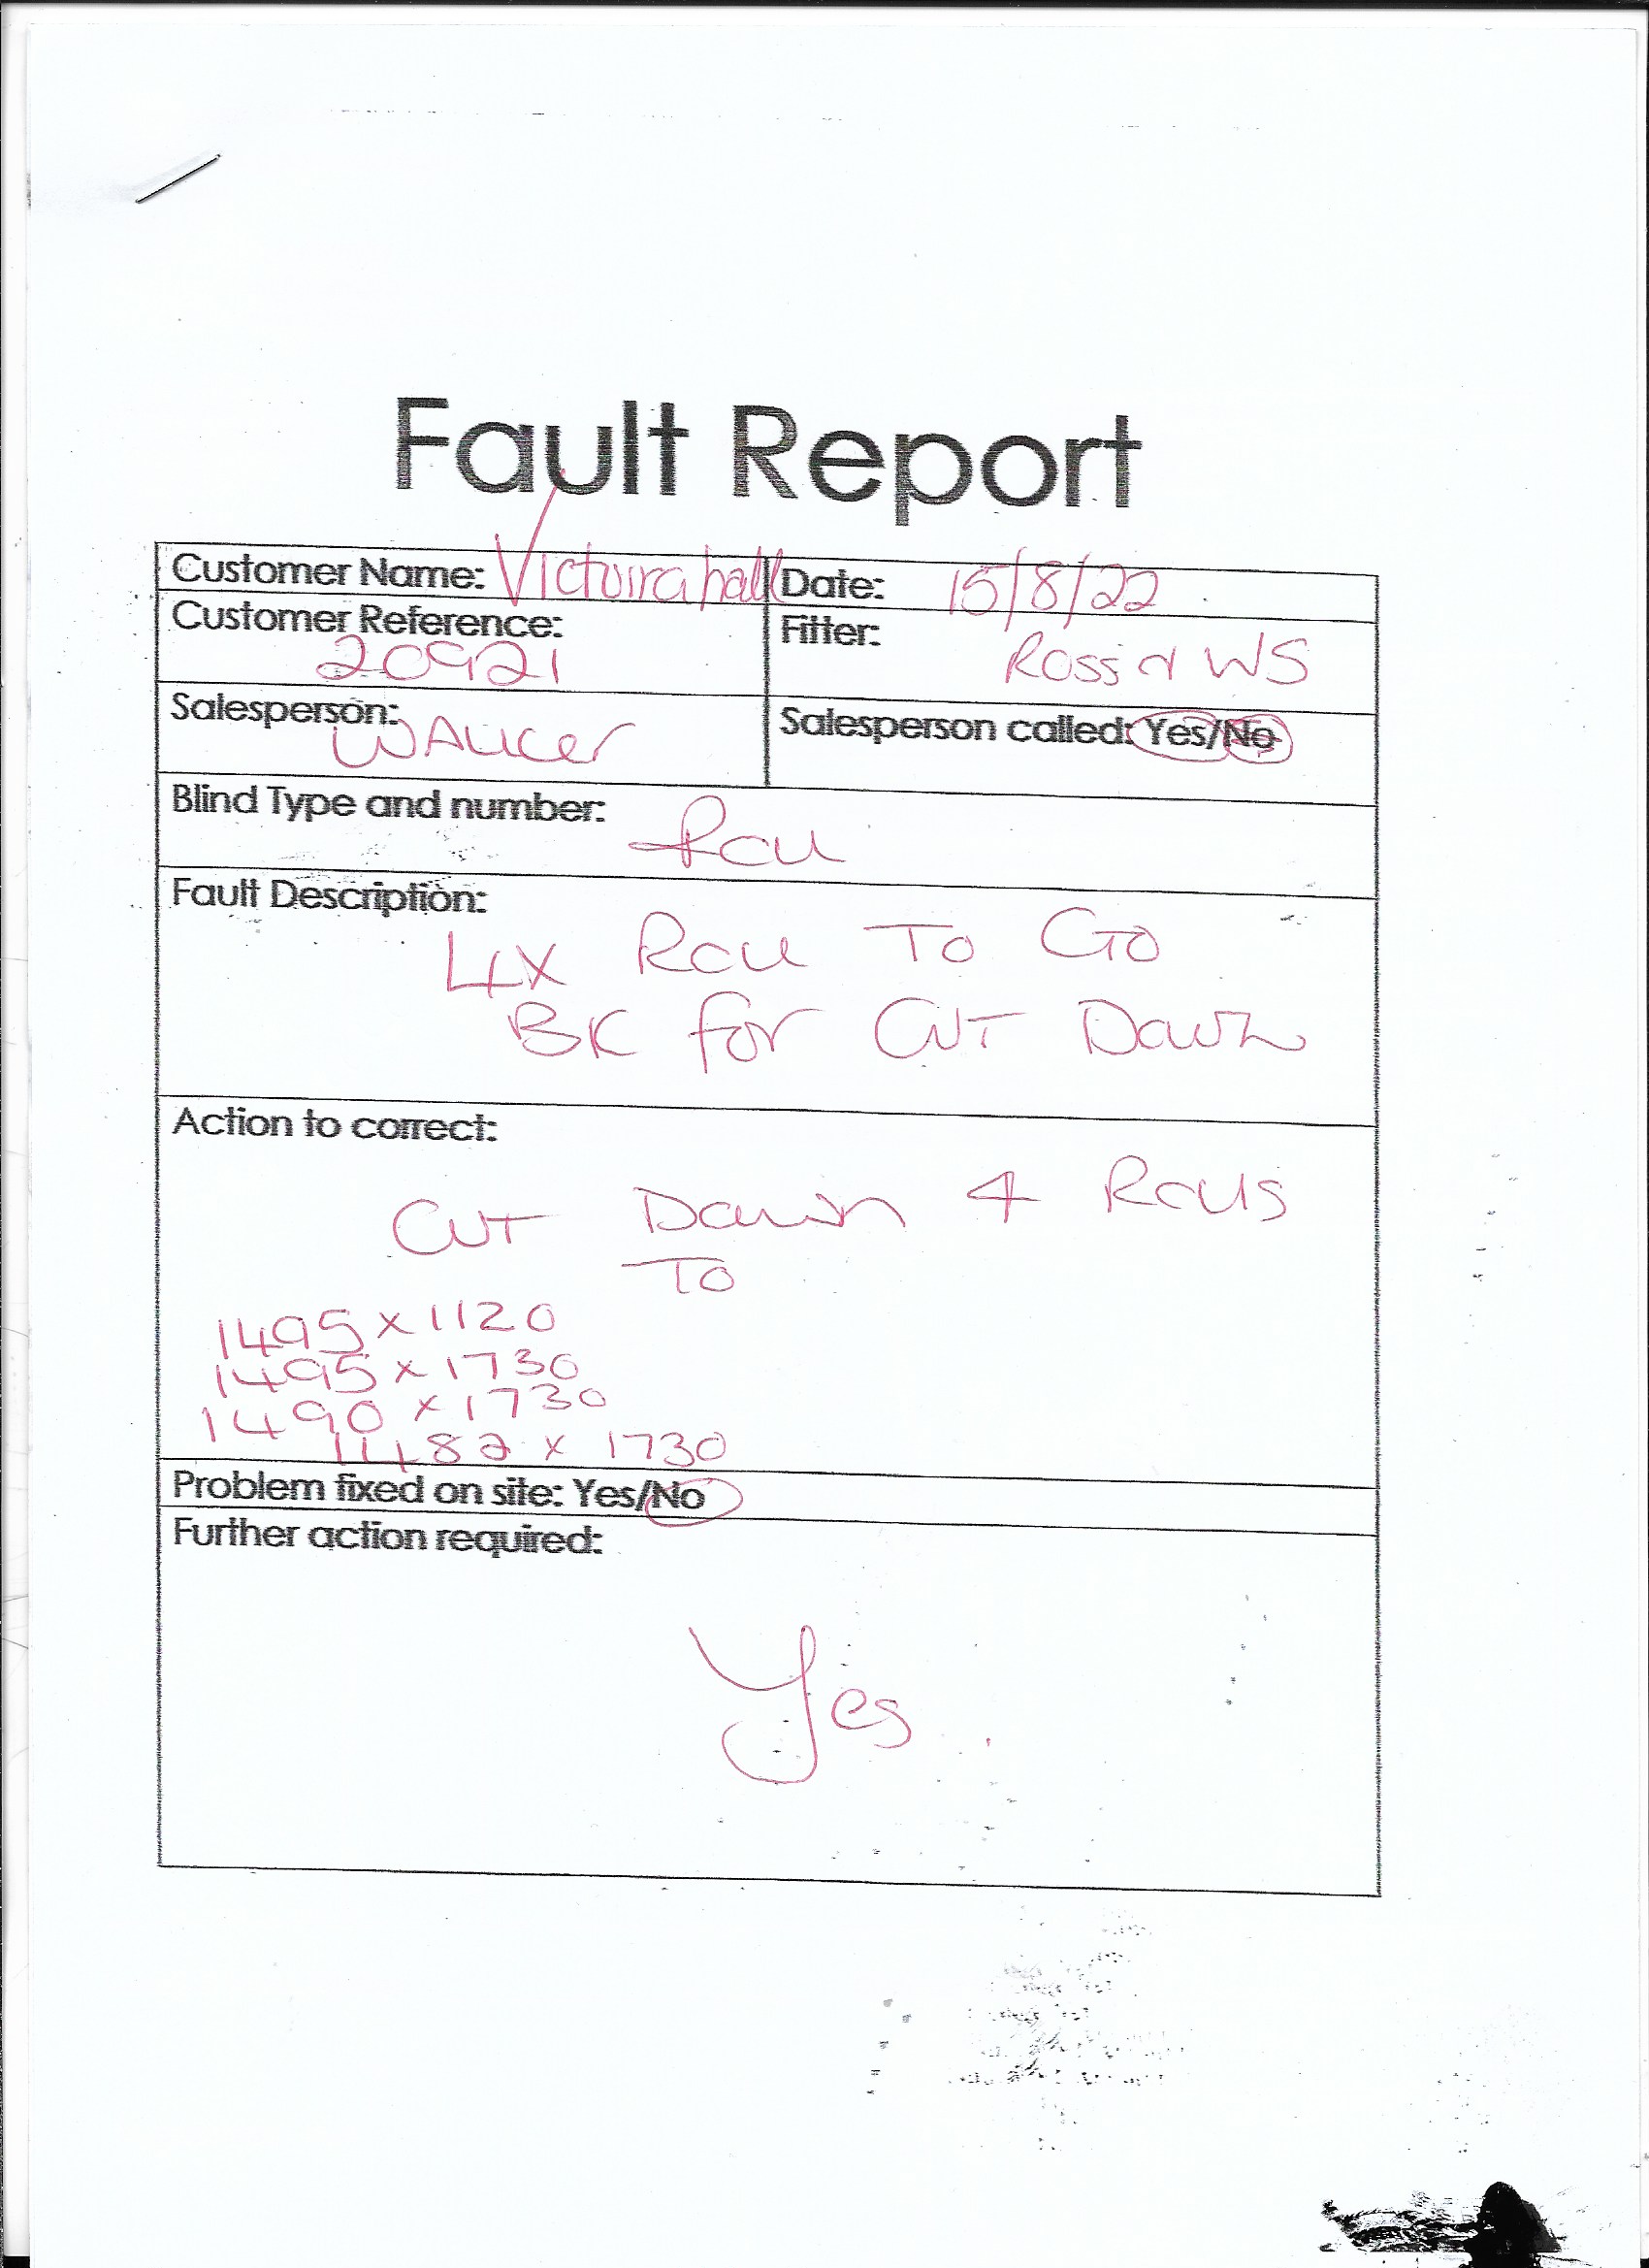 Fault Report
Customer Name: Victoira hall Date: 15/8/22
Customer Reference: Fitter:
20921 Ross & WS
Salesperson: Salesperson called: Yes/No
Blind Type and number: Roll
Fault Description:
4x Roll To Go
BK for CUT Down
Action to correct:
CUT Down 4 Rolls
To
1495 x 1120
1495 x 1730
1490 x 1730
1482 x 1730
Problem fixed on site: Yes/No
Further action required:
Yes